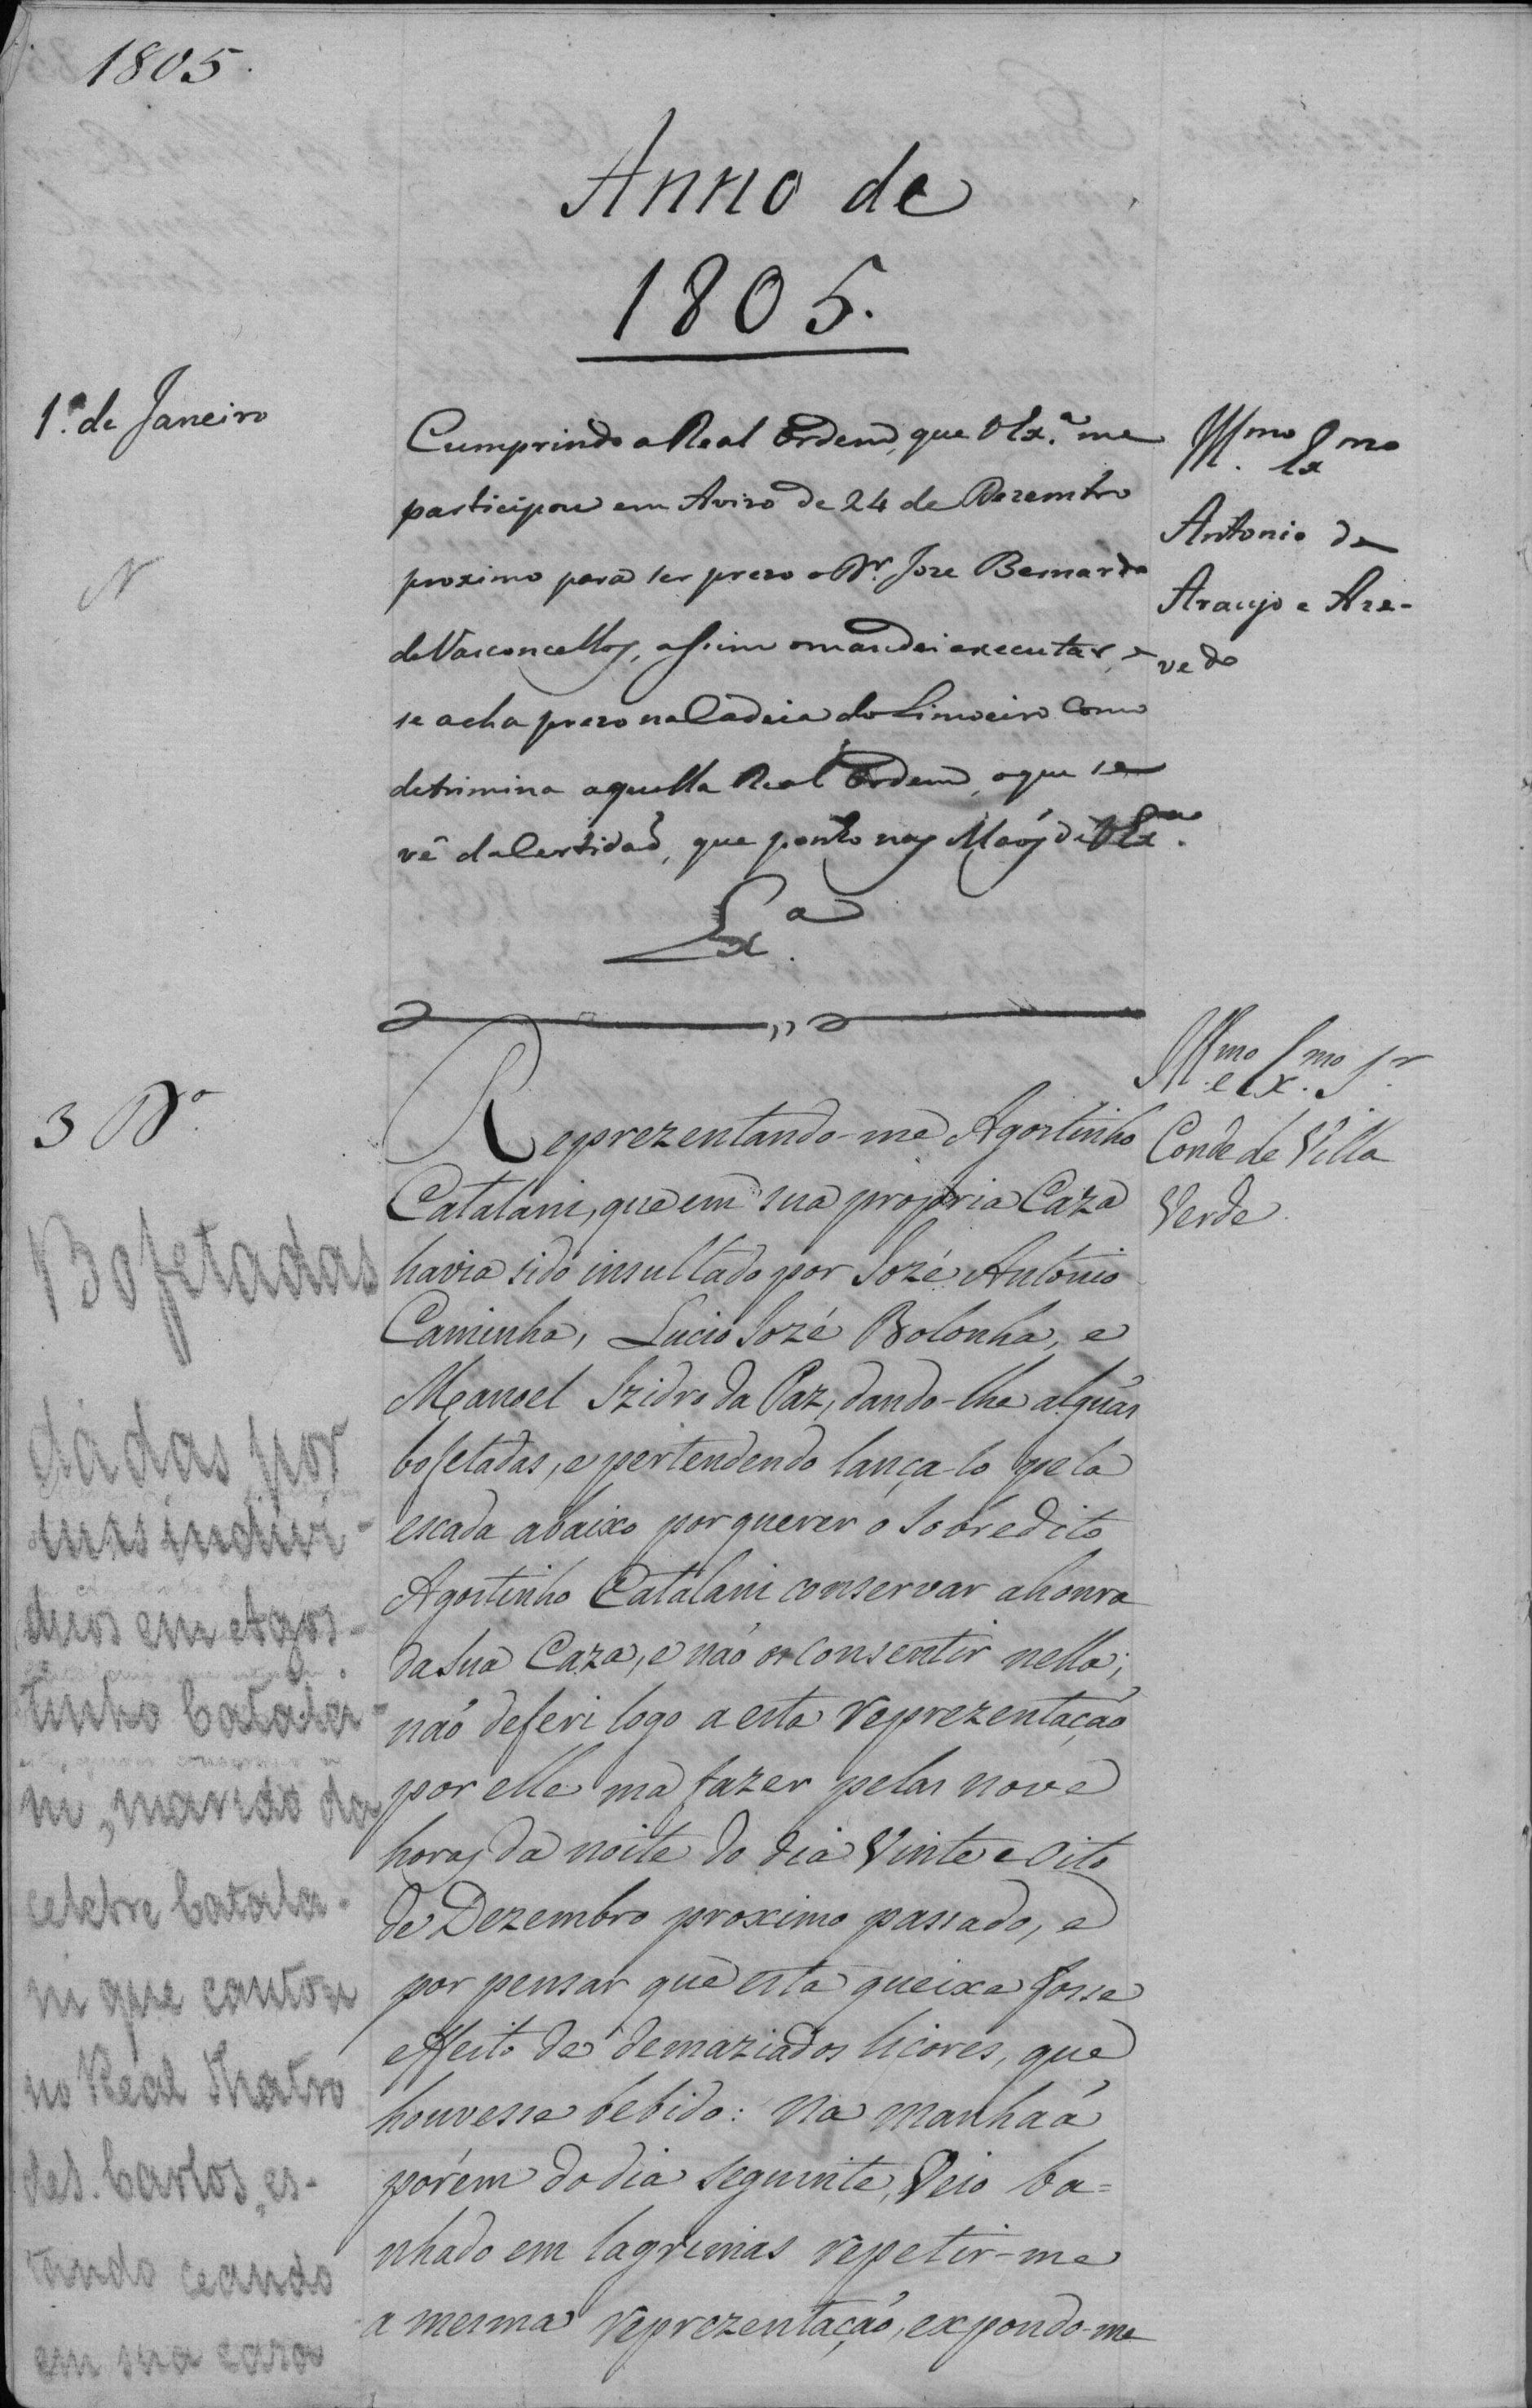 1805.
Anno de
1805.
1.º de Janeiro
N
Cumprindo a Real Ordem, que V Ex.ª me
participou em Aviso de 24 de Dezembro
proximo para ser prezo o Dr. Joze Bernardo
de Vasconcellos, assim o mandei executar, e
se acha prezo na Cadeia do Limoeiro como
detrimina aquella Real Ordem, o que se
vê da Certidaõ, que ponho nas Maõs de V Ex.ª
Ill.mo Ex.mo
Antonio de
Araujo e Aze-
vedo
3 D.º
Reprezentando-me Agostinho
Catalani, que em sua propria Caza
havia sido insultado por Jozé Antonio
Caminha, Lucio Jozé Bolonha, e
Manoel Izidro da Paz, dando-lhe alguãs
bofetadas, e pertendendo lança-lo pela
escada abaixo por querer o Sobredito
Agostinho Catalani conservar a honra
da sua Caza, e naõ os consentir nella;
naõ deferi logo a esta reprezentaçaõ
por elle ma fazer pelas nove
horas da noite do dia Vinte e oito
de Dezembro proximo passado, e
por pensar que esta queixa fosse
effeito de demaziados licores, que
houvesse bebido: na manhaã
porém do dia seguinte, Veio ba=
nhado em lagrimas repetir-me
a mesma reprezentaçaõ, expondo-me
Ill.mo e Ex.mo Sr.
Conde de Villa
Verde
Bofetadas
dadas por
uns indivi-
duos em Agos-
tinho Catala-
ni, marido da
celebre Catala-
ni que cantou
no Real Theatro
de S. Carlos, es-
tando ceando
em sua casa